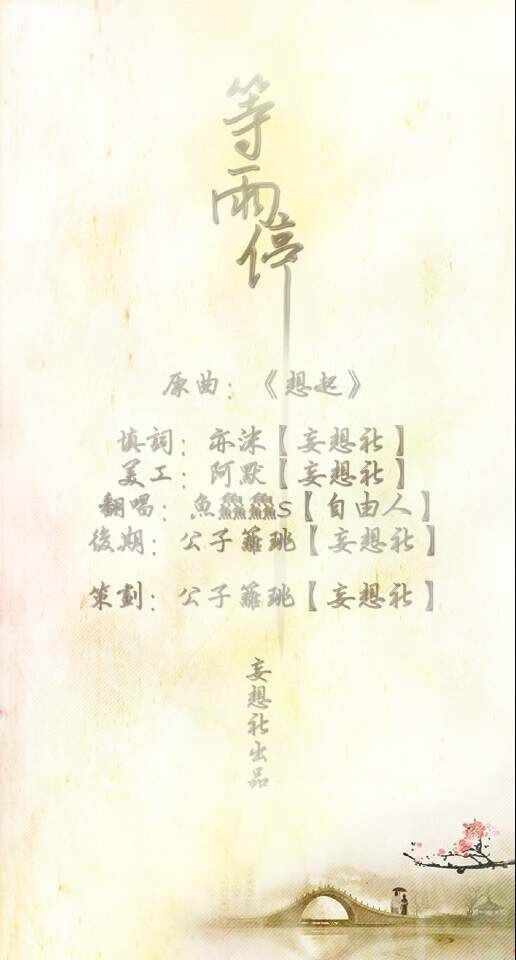 等雨停
原曲：《想起》
填詞：亦洣【妄想社】
美工：阿默【妄想社】
翻唱：魚鱻鱻s【自由人】
後期：公子蘿珧【妄想社】
策劃：公子蘿珧【妄想社】
妄想社出品